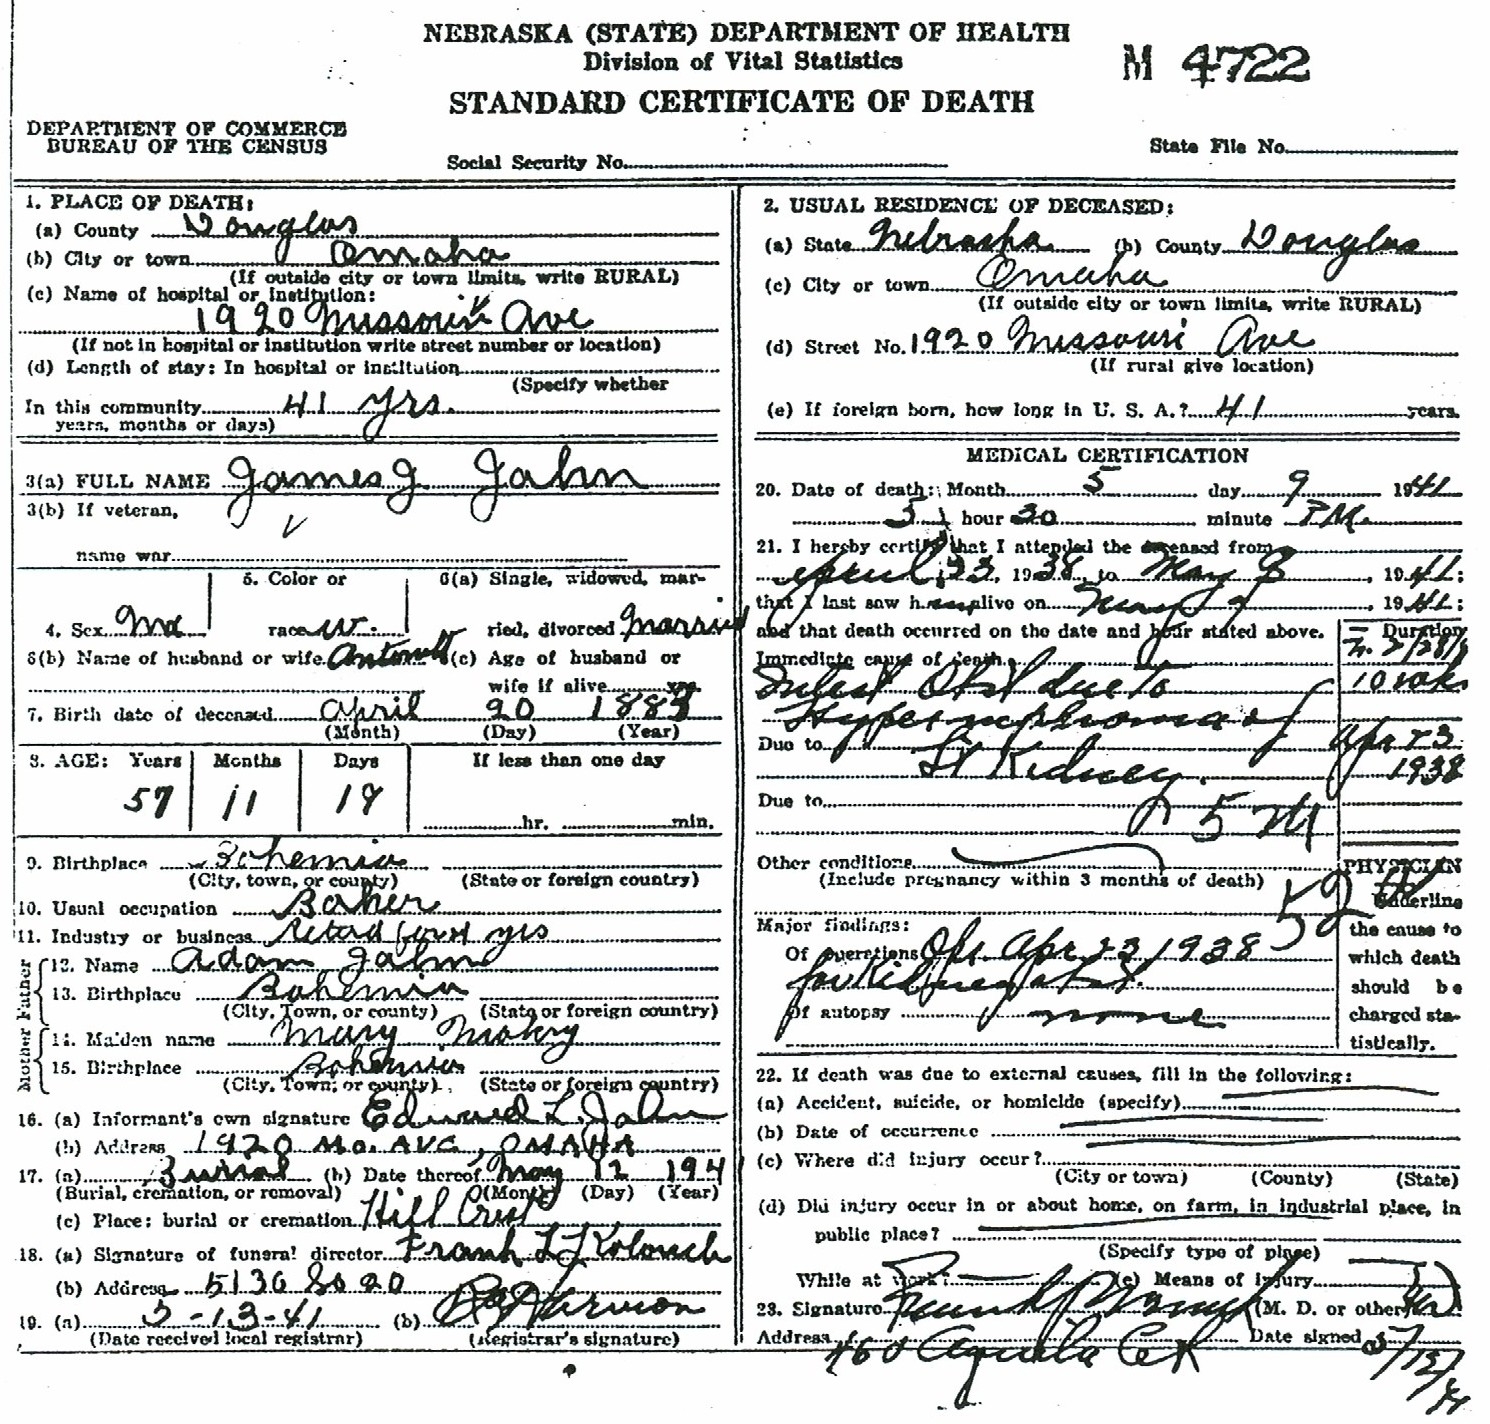 NEBRASKA (STATE) DEPARTMENT OF HEALTH
Division of Vital Statistics
M 4722
STANDARD CERTIFICATE OF DEATH
DEPARTMENT OF COMMERCE
BUREAU OF THE CENSUS
Social Security No.
State File No.
1. PLACE OF DEATH:
(a) County Douglas
(b) City or town Omaha
(If outside city or town limits, write RURAL)
(c) Name of hospital or institution:
1920 Missouri Ave
(If not in hospital or institution write street number or location)
(d) Length of stay: In hospital or institution
(Specify whether
In this community 41 yrs.
years, months or days)
3(a) FULL NAME James J Jahn
3(b) If veteran,
name war
4. Sex Ma 5. Color or race w. 6(a) Single, widowed, married, divorced Married
6(b) Name of husband or wife Antonett 6(c) Age of husband or
wife if alive yrs.
7. Birth date of deceased April 20 1883
(Month) (Day) (Year)
8. AGE: Years Months Days If less than one day
57 11 18 hr. min.
9. Birthplace Bohemia
(City, town, or county) (State or foreign country)
10. Usual occupation Baker
11. Industry or business yrs
Father
12. Name Adam Jahn
13. Birthplace Bohemia
(City, Town, or county) (State or foreign country)
Mother
14. Maiden name Mary Mokry
15. Birthplace Bohemia
(City, Town, or county) (State or foreign country)
16. (a) Informant's own signature Edward L. Jahn
(b) Address 1920 Mo. AVE, OMAHA
17. (a) Burial (b) Date thereof May 12 194
(Burial, cremation, or removal) (Month) (Day) (Year)
(c) Place: burial or cremation Hill Crest
18. (a) Signature of funeral director Frank J Kolouch
(b) Address 5130 So 20
19. (a) 5-13-41 (b)
(Date received local registrar) (Registrar's signature)
2. USUAL RESIDENCE OF DECEASED:
(a) State Nebraska (b) County Douglas
(c) City or town Omaha
(If outside city or town limits, write RURAL)
(d) Street No. 1920 Missouri Ave
(If rural give location)
(e) If foreign born, how long in U. S. A.? 41 years.
MEDICAL CERTIFICATION
20. Date of death: Month 5 day 9 1941
5 hour 30 minute P.M.
21. I hereby certify that I attended the deceased from
April 23, 1938, to May 8, 1941;
that I last saw him alive on May 9, 1941;
and that death occurred on the date and hour stated above.
Duration
Immediate cause of death
Intest Obst due to 10 wks
Hypernephroma of
Due to Apr 23
Lt Kidney. 1938
Due to
52
Other conditions
(Include pregnancy within 3 months of death)
PHYSICIAN
Underline
the cause to
which death
should be
charged statistically.
Major findings:
Of operations Apr 23 1938
for Kidney
Of autopsy none
22. If death was due to external causes, fill in the following:
(a) Accident, suicide, or homicide (specify)
(b) Date of occurrence
(c) Where did injury occur?
(City or town) (County) (State)
(d) Did injury occur in or about home, on farm, in industrial place, in
public place?
(Specify type of place)
While at work? (e) Means of injury
23. Signature (M. D. or other)
Address Date signed 5/12/41